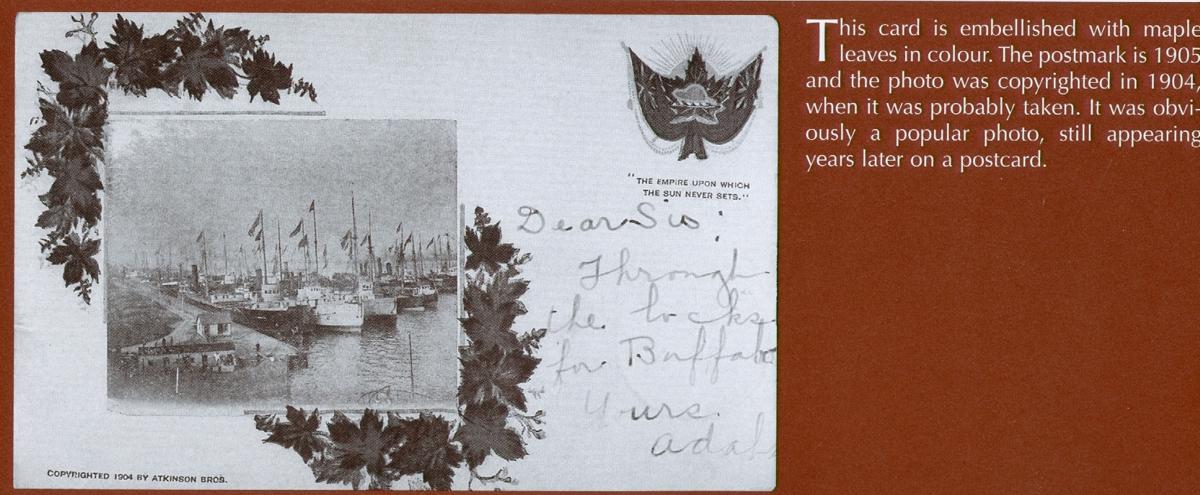 "THE EMPIRE UPON WHICH
THE SUN NEVER SETS."
Dear Sis:
Through
the locks
for Buffalo
Yours
Adah
COPYRIGHTED 1904 BY ATKINSON BROS.
This card is embellished with maple
leaves in colour. The postmark is 1905
and the photo was copyrighted in 1904,
when it was probably taken. It was obvi-
ously a popular photo, still appearing
years later on a postcard.